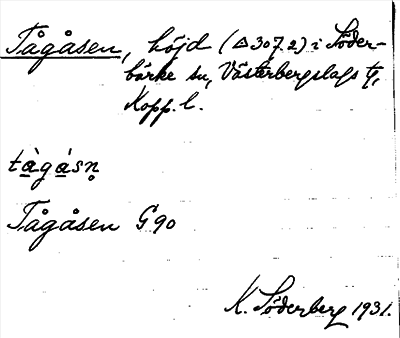 Tågåsen, höjd (△307.2) i Söder-
bärke sn, Västerbergslags tg,
Kopp. l.
tàgásn̥
Tågåsen G 90
K. Söderberg 1931.